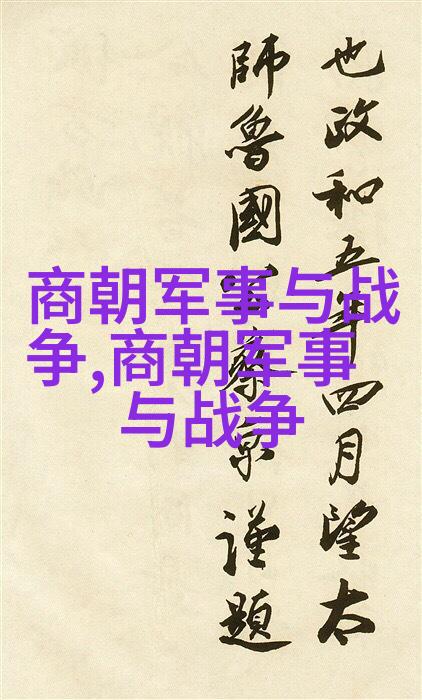 也政和五年四月望太
師魯國公蔡京謹題
商朝军事与战
争,商朝军事
与战争